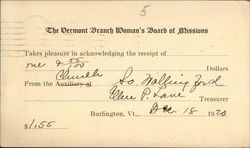 5
The Vermont Branch Woman's Board of Missions
Takes pleasure in acknowledging the receipt of
one & 55/100 Dollars
Church
From the Auxiliary at So. Wallingford
Ellen P. Lane
Treasurer
Burlington, Vt., Dec. 18 1920
$1.55